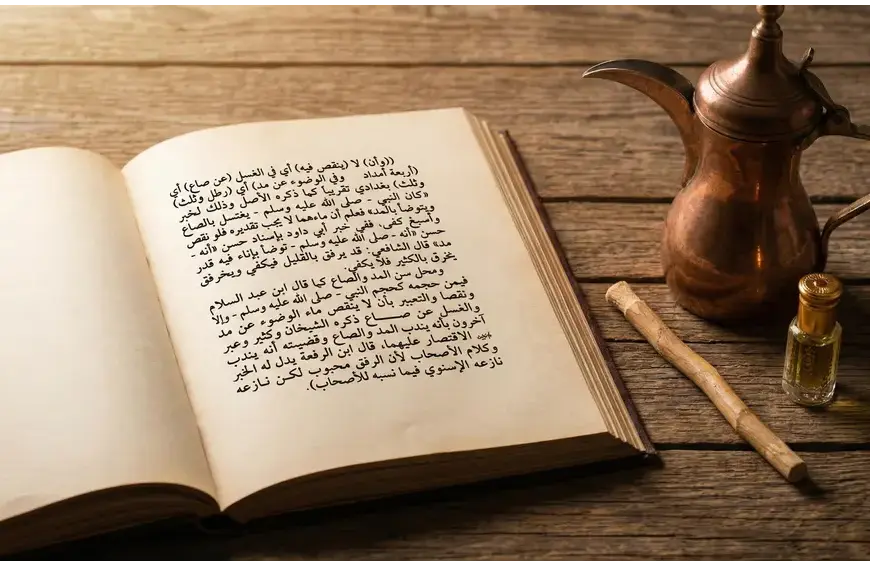 ((وأن) لا (ينقص فيه) أي في الغسل (عن صاع) أي
(أربعة أمداد وفي الوضوء عن مد) أي (رطل وثلث)
وثلث) بغدادي تقريبا كما ذكره الأصل وذلك لخبر
«كان النبي - صلى الله عليه وسلم - يغتسل بالصاع
ويتوضأ بالمد» فعلم أن ماءهما لا يجب تقديره فلو نقص
وأسبغ كفى. ففي خبر أبي داود بإسناد حسن «أنه -
حسن «أنه - صلى الله عليه وسلم - توضأ بإناء فيه قدر
مد» قال الشافعي: قد يرفق بالقليل فيكفي ويخرق
يخرق بالكثير فلا يكفي.
ومحل سن المد والصاع كما قال ابن عبد السلام
فيمن حجمه كحجم النبي - صلى الله عليه وسلم - وإلا
ونقصا والتعبير بأن لا ينقص ماء الوضوء عن مد
والغسل عن صاع ذكره الشيخان وكثير وعبر
آخرون بأنه يندب المد والصاع وقضيته أنه يندب
الاقتصار عليهما، قال ابن الرفعة يدل له الخبر
وكلام الأصحاب لأن الرفق محبوب لكن نازعه
نازعه الإسنوي فيما نسبه للأصحاب).